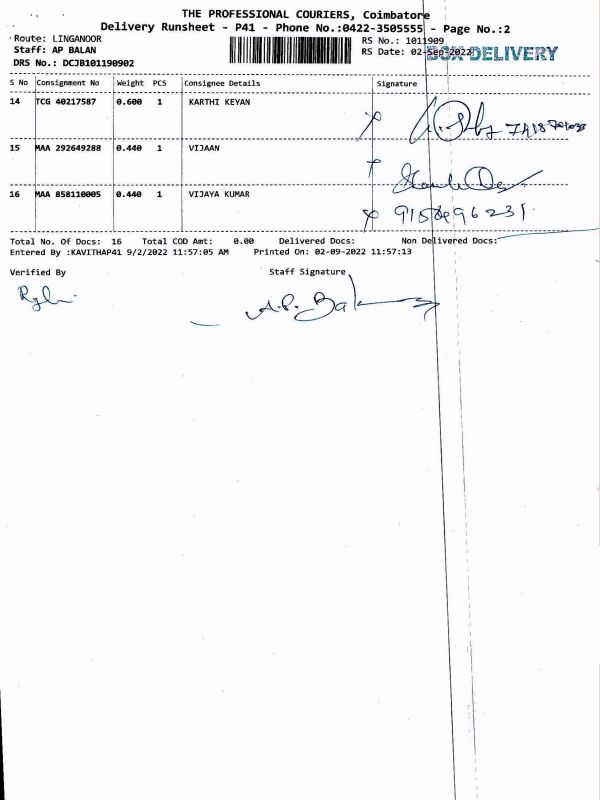 THE PROFESSIONAL COURIERS, Coimbatore
Delivery Runsheet - P41 - Phone No.:0422-3505555 - Page No.:2
Route: LINGANOOR RS No.: 1011909
Staff: AP BALAN RS Date: 02-Sep-2022 BOX DELIVERY
DRS No.: DCJB101190902
S No Consignment No Weight PCS Consignee Details Signature
14 TCG 40217587 0.600 1 KARTHI KEYAN
15 MAA 292649288 0.440 1 VIJAAN
16 MAA 858110005 0.440 1 VIJAYA KUMAR
Total No. Of Docs: 16 Total COD Amt: 0.00 Delivered Docs: Non Delivered Docs:
Entered By :KAVITHAP41 9/2/2022 11:57:05 AM Printed On: 02-09-2022 11:57:13
Verified By Staff Signature
A.P. Bal